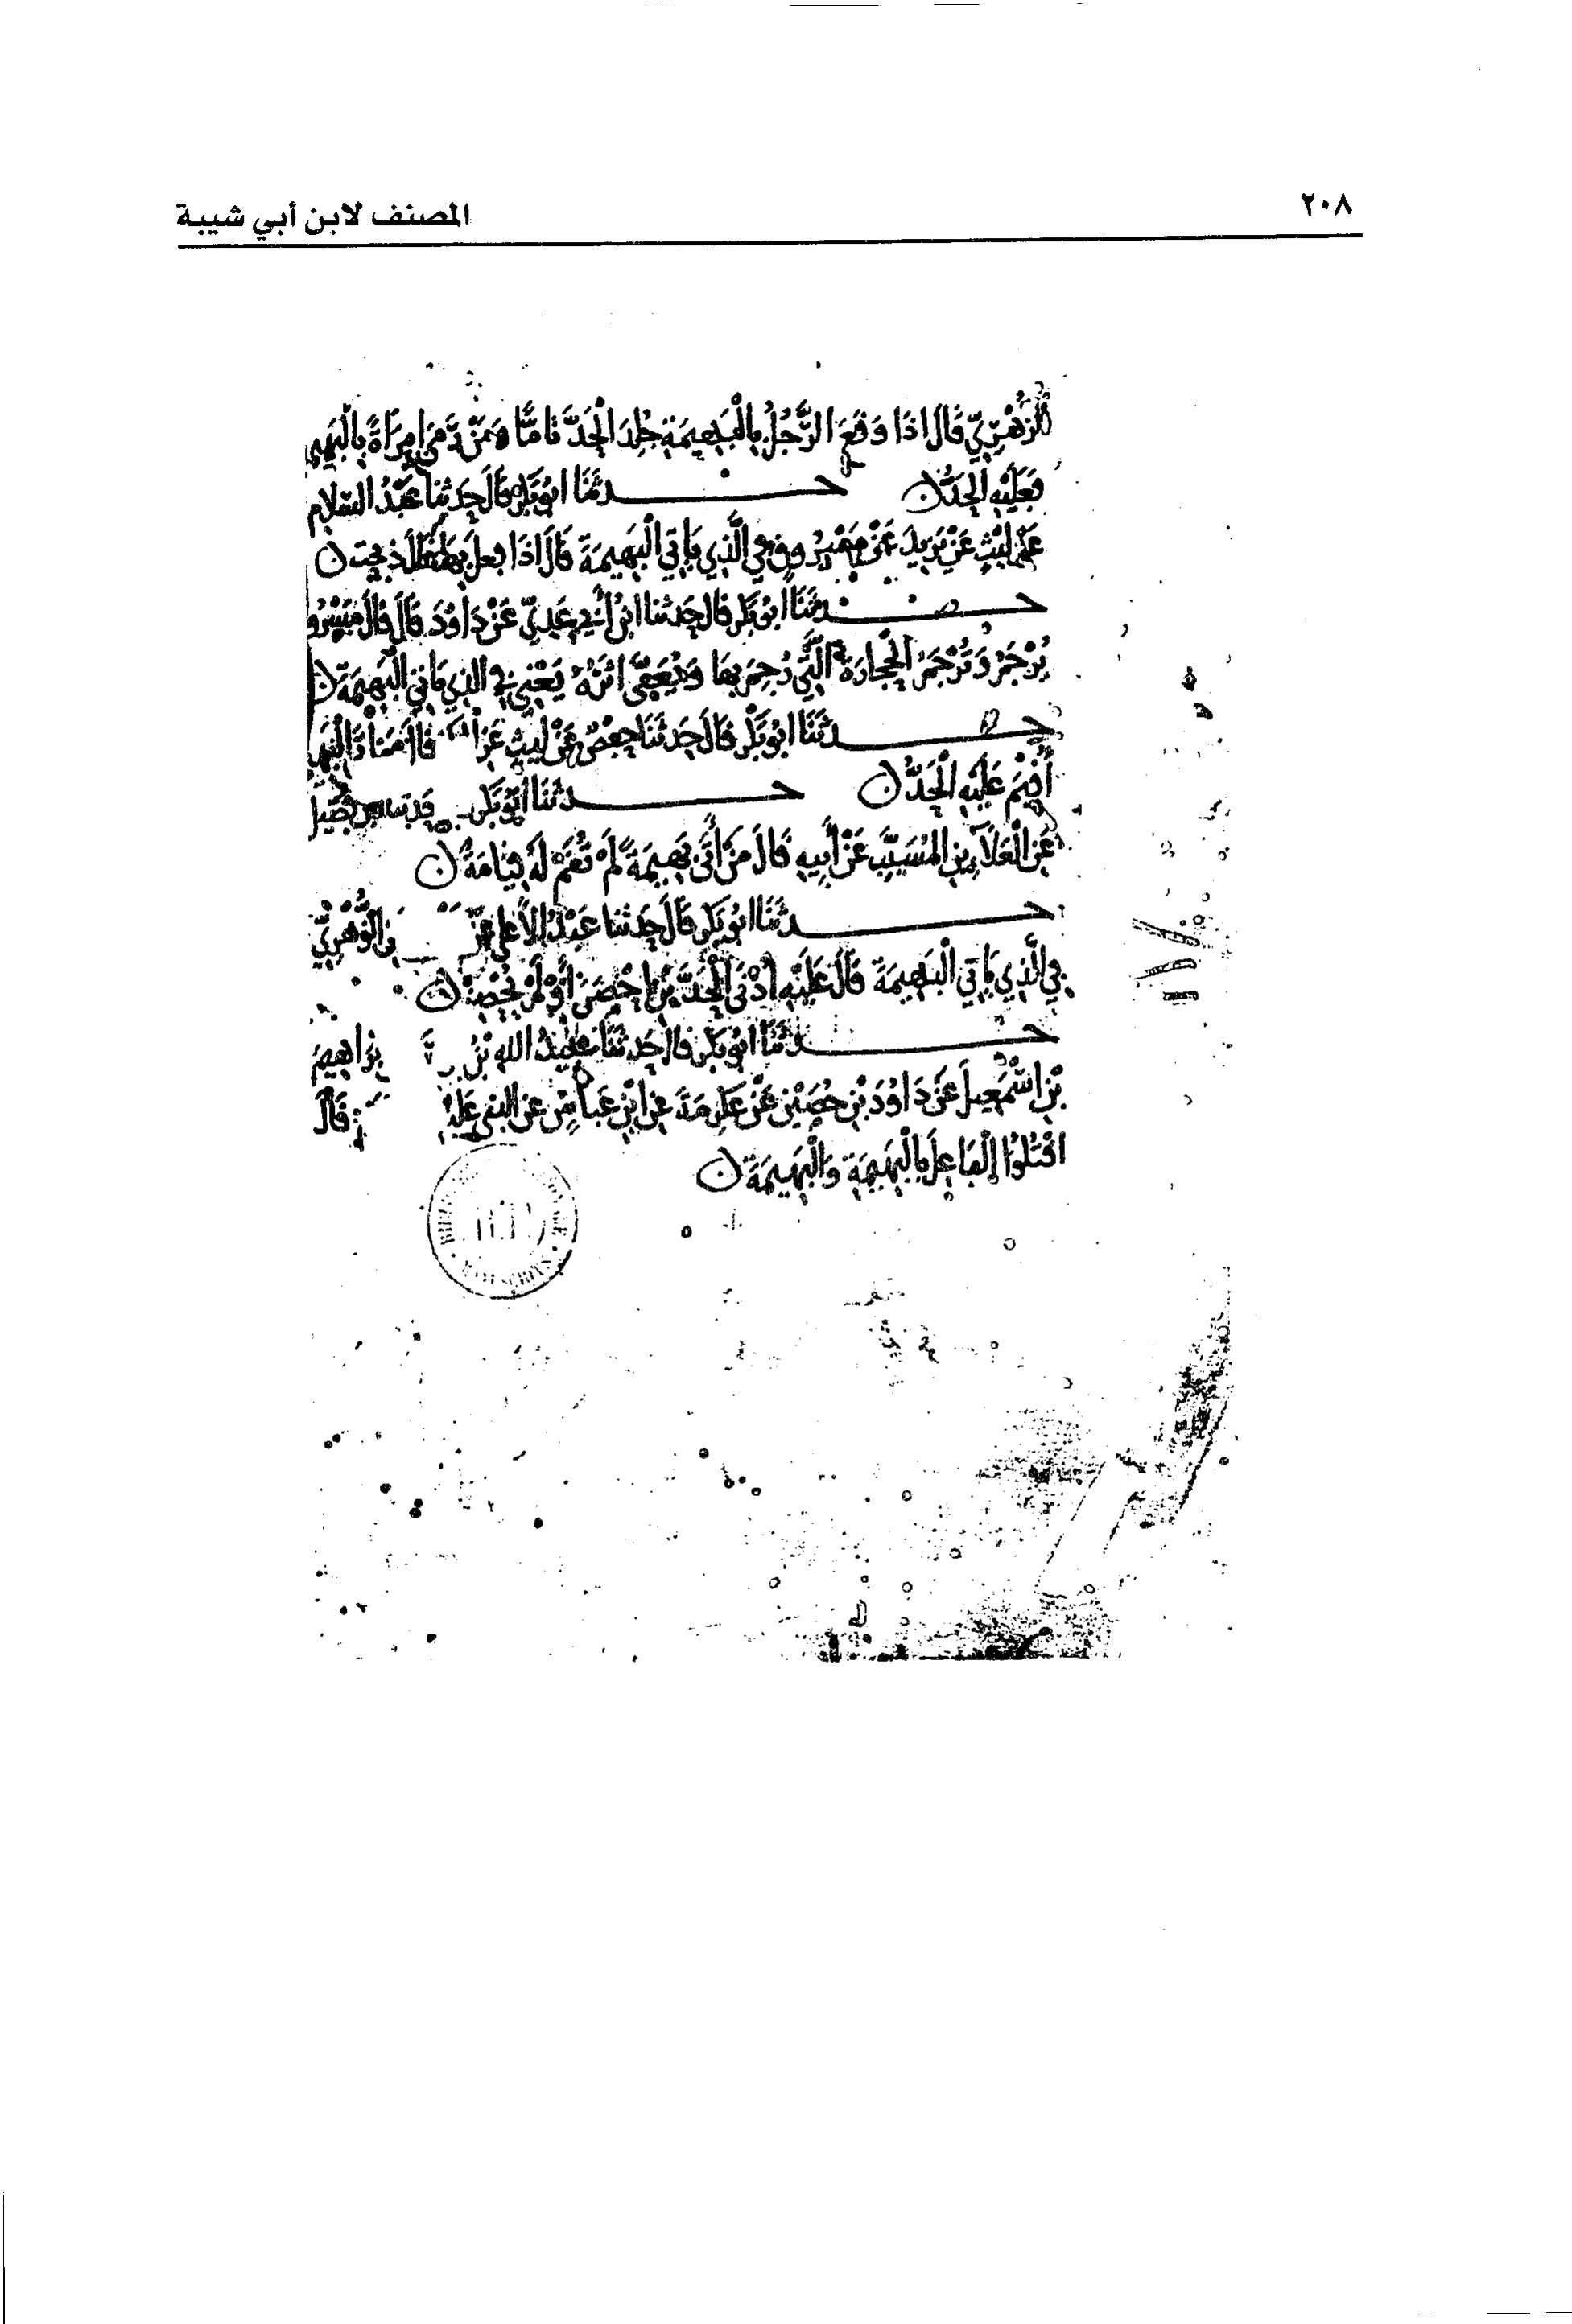 ٢٠٨
المصنف لابن أبي شيبة
الزُّهْرِيِّ قَالَ اذَا وَقَعَ الرَّجُلُ بِالْبَهِيمَةِ جُلِدَ الْحَدَّ تَامًّا وَمَنْ رَمَى امِرَأَةً بِالْبَهِيم
فَعَلَيْهِ الْحَدُّ ن حــدثَنَا ابُو بَكْرٍ قَالَ حَدثنا عَبْدُ السَّلَام
عَنْ لَيْثٍ عَنْ يَزِيدَ عَنْ فِي الَّذِي يَأْتِي الْبَهِيمَةَ قَالَ اذَا فعل بِهَا ذبحت ن
حــدثَنَا ابُو بَكْرٍ قال حدثنا ابنُ أَبِي عَدِيٍّ عَنْ دَاوُدَ قَالَ قَالَ مَسْرُو
يُرْجَمُ وَتُرْجَمُ الْحِجَارَةُ الَّتِي رُجِمَ بِهَا وَيُعَفَّى اثَرُهُ يَعْنِي فِي الذي يَأتي الْبَهِيمَةَ ن
حــدثَنَا ابُو بَكْرٍ قَالَ حَدثَنَا حَفْصٌ عَنْ لَيْثٍ عَنْ قَالَ مَنْ الْبَهِي
أُقِيْمَ عَلَيْهِ الْحَدُّ ن حــدثَنَا ابُو بَكْرٍ فُضَيْل
عَنِ الْعَلَاءِ بنِ الْمُسَيَّبِ عَنْ أَبِيهِ قَالَ مَنْ أَتَى بَهِيمَةً لَمْ تُقَمْ لَهُ قِيَامَةٌ ن
حــدثَنَا ابُو بَكْرٍ قَالَ حَدثنا عَبْدُ الأَعْلَى عَنْ الزُّهْرِيِّ
فِي الَّذِي يَأتِي الْبَهِيمَةَ قَالَ عَلَيْهِ أَدْنَى الْحَدَّيْنِ احْصَنَ أَوْ لَمْ يُحْصِنْ ن
حــدثَنَا ابُو بَكْرٍ قال حَدثَنَا عبيدُ اللهِ بْنُ ابْرَاهِيمَ
بْنِ اسْمَعِيلَ عَنْ دَاوُدَ بْنِ حُصَيْنٍ عَنْ عِكْرِمَةَ عَنِ ابْنِ عَبَّاسٍ عن النبي عَلَيْهِ قَالَ
اقْتُلُوا الْفَاعِلَ بِالْبَهِيمَةِ وَالْبَهِيمَةَ ن